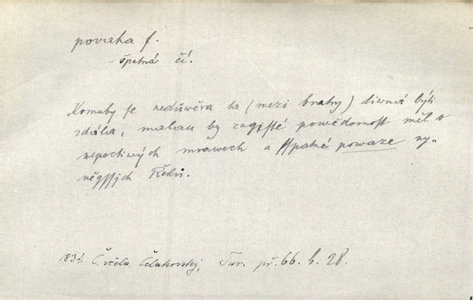 povaha f.
- špatná čí.
Komuby se nedůwěra ta (mezi brahy) diwná býti
zdála, malau by zagisté powědomost měl o
nepoctiwých mrawech a sspatné powaze ny-
něgssjch Řeků.
1834. Č. včela, Čelakovský, Tur. př. 66. b. 28.